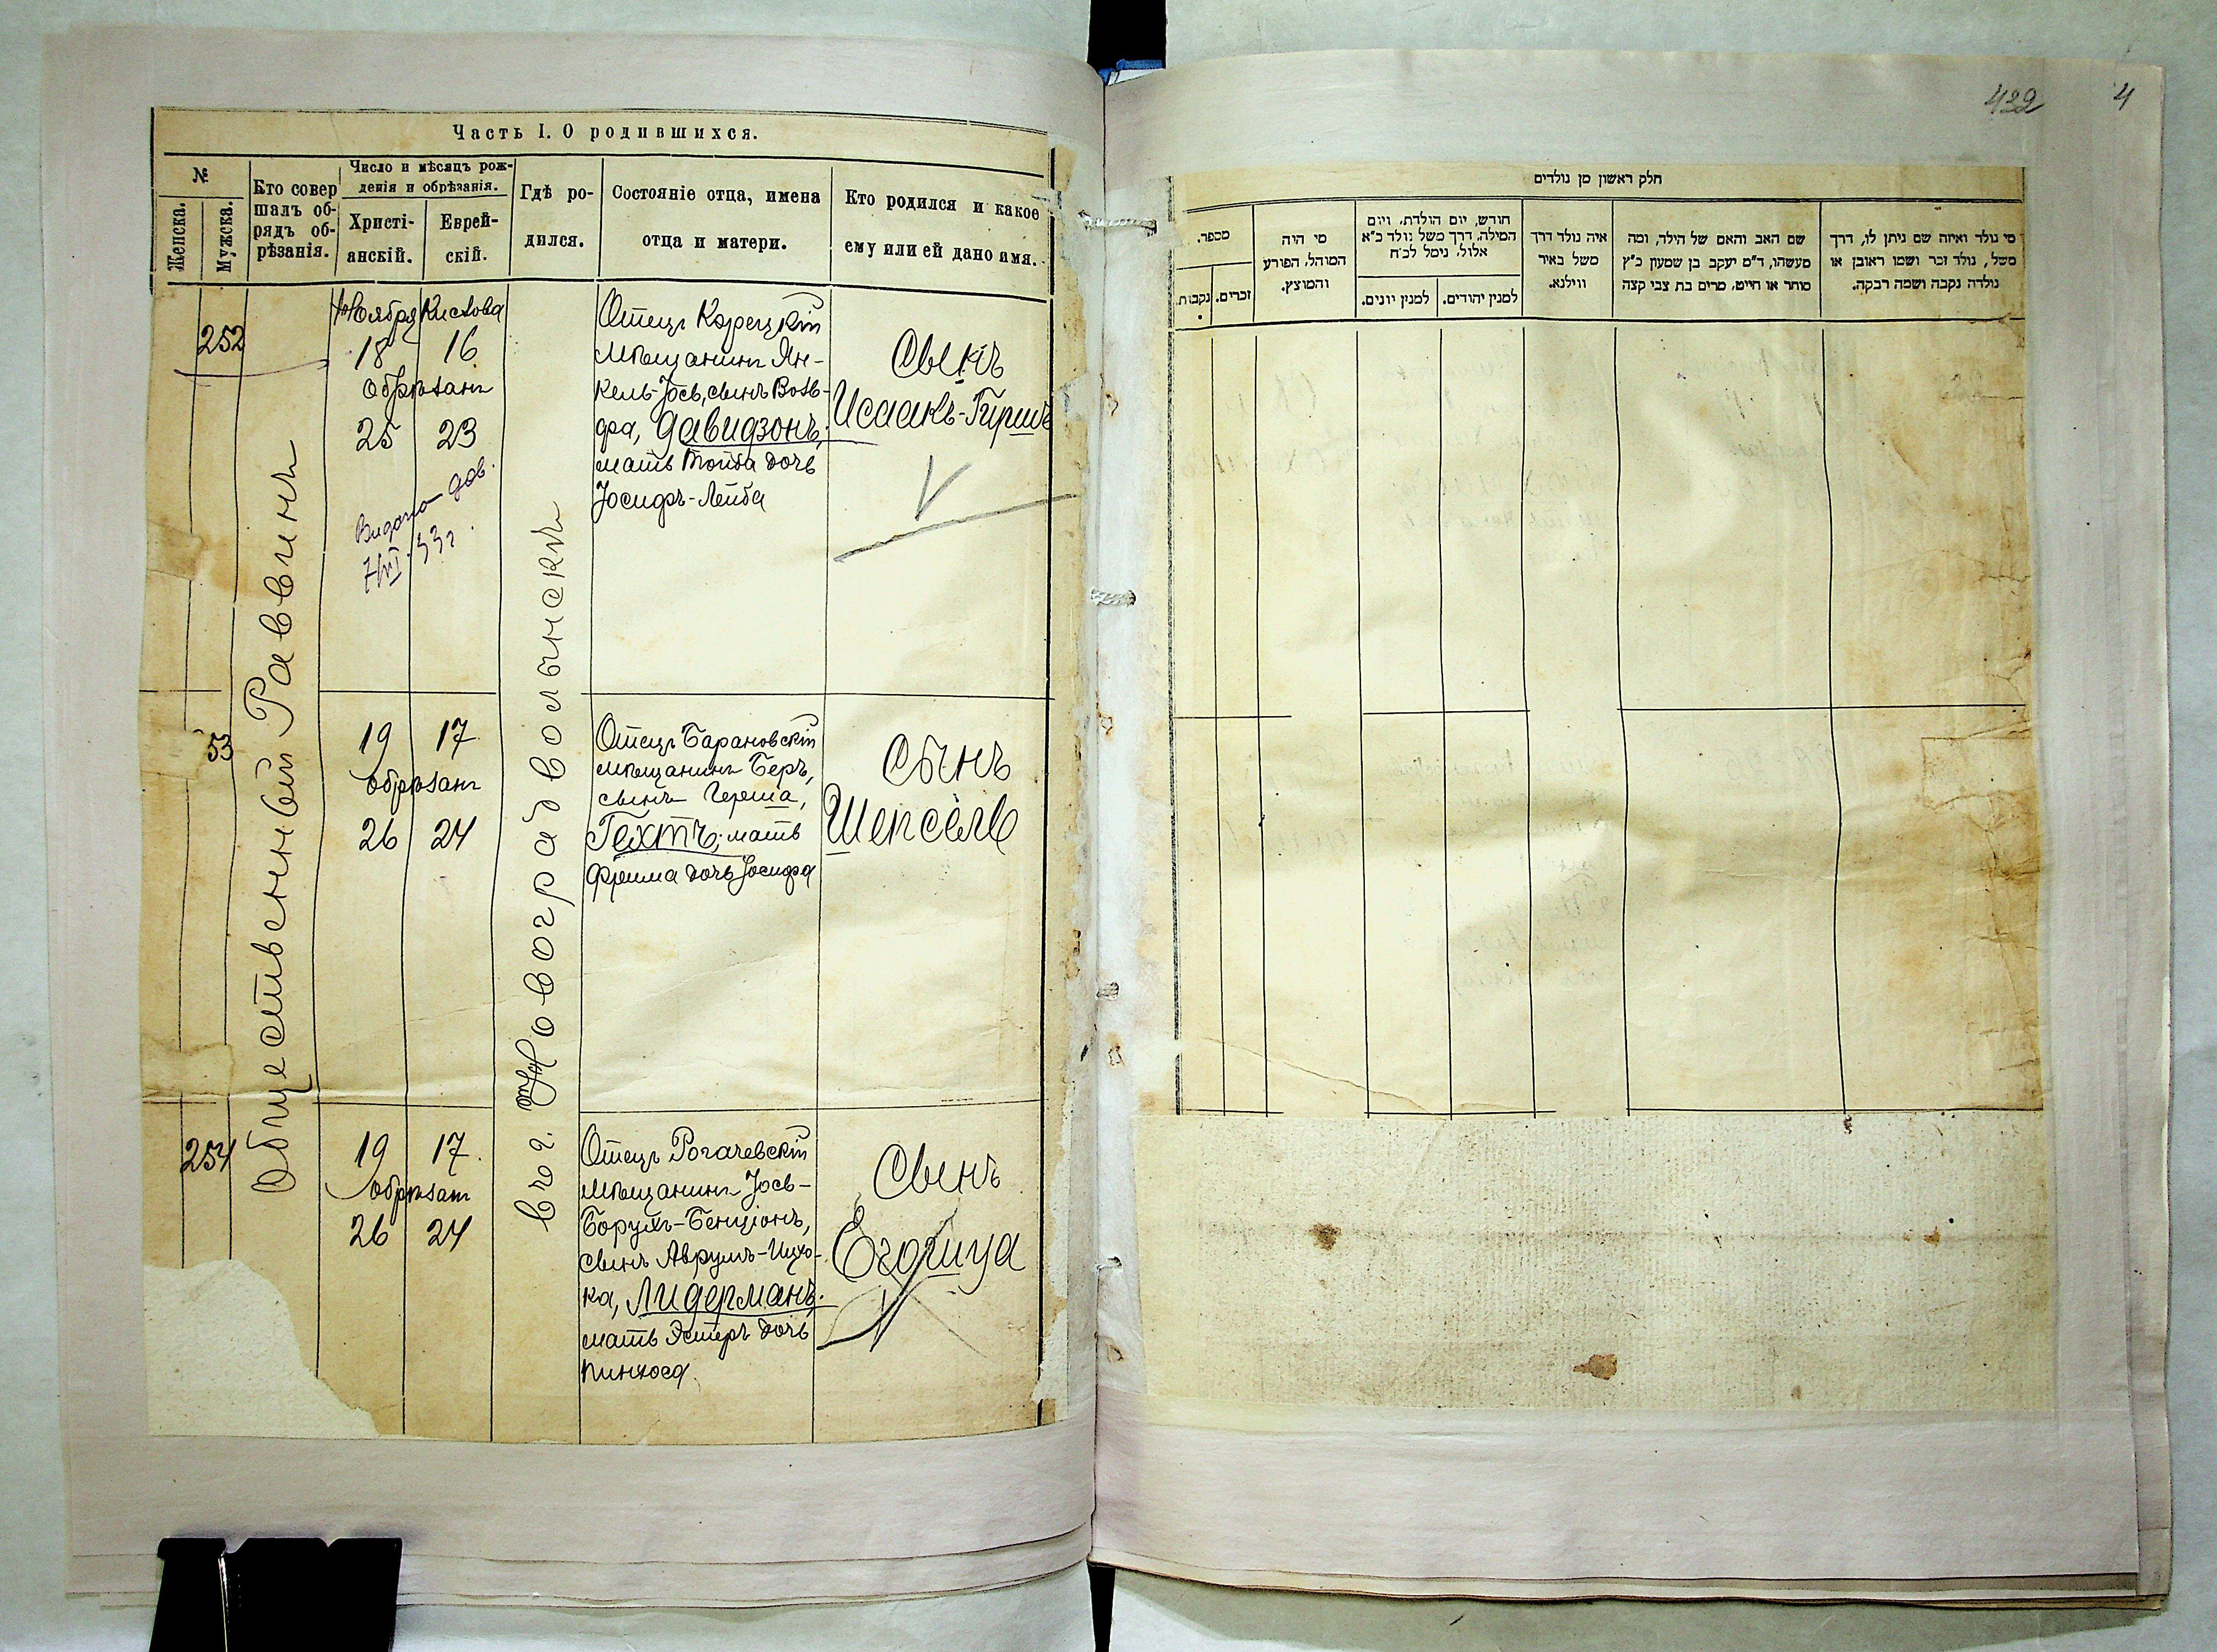 Часть I. О родившихся.
№
Женска.
Мужска.
Кто совер
шалъ об-
рядъ об-
рѣзанія.
Число и мѣсяцъ рож-
денія и обрѣзанія.
Христі-
анскій.
Еврей-
скій.
Гдѣ ро-
дился.
Состояніе отца, имена
отца и матери.
Кто родился и какое
ему или ей дано имя.
Общественный Раввинъ
въ г. Новоградволынскѣ
252
Ноября Кислова
18 16
обрѣзанъ
25 23
Видано дов.
7/VI. 33 г.
Отецъ Корецкій
мѣщанинъ Ян-
кель-Іось, сынъ Воль-
фа, Давидзонъ,
мать Тойба дочь
Іосифъ-Лейба
Сынъ
Исаакъ-Гиршъ
53
19 17
обрѣзанъ
26 24
Отецъ Барановскій
мѣщанинъ Беръ,
сынъ Герша,
Гехтъ; мать
Фрима дочь Іосифа
Сынъ
Шепсель
254
19 17.
обрѣзанъ
26 24
Отецъ Рогачевскій
мѣщанинъ Іось-
Борухъ-Бенціонъ,
сынъ Аврумъ-Ицхо-
ка, Лидерманъ.
мать Эстеръ дочь
Пинхоса.
Сынъ
Егошуа
422 4
חלק ראשון מן נולדים
מספר.
נקבות.
זכרים.
מי היה
המוהל, הפורע
והמוצץ.
חודש, יום הולדת, ויום
המילה, דרך משל נולד כ"א
אלול, נימל לכ"ח
למנין יונים.
למנין יהודים.
איה נולד דרך
משל באיר
ווילנא.
שם האב והאם של הילד, ומה
מעשהו, ד"מ יעקב בן שמעון כ"ץ
סוחר או חייט, מרים בת צבי קצה
מי נולד ואיזה שם ניתן לו, דרך
משל, נולד זכר ושמו ראובן או
נולדה נקבה ושמה רבקה.